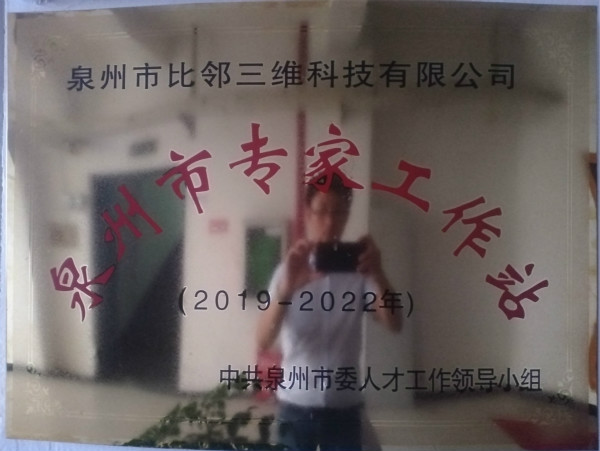 泉州市比邻三维科技有限公司
泉州市专家工作站
(2019-2022年)
中共泉州市委人才工作领导小组